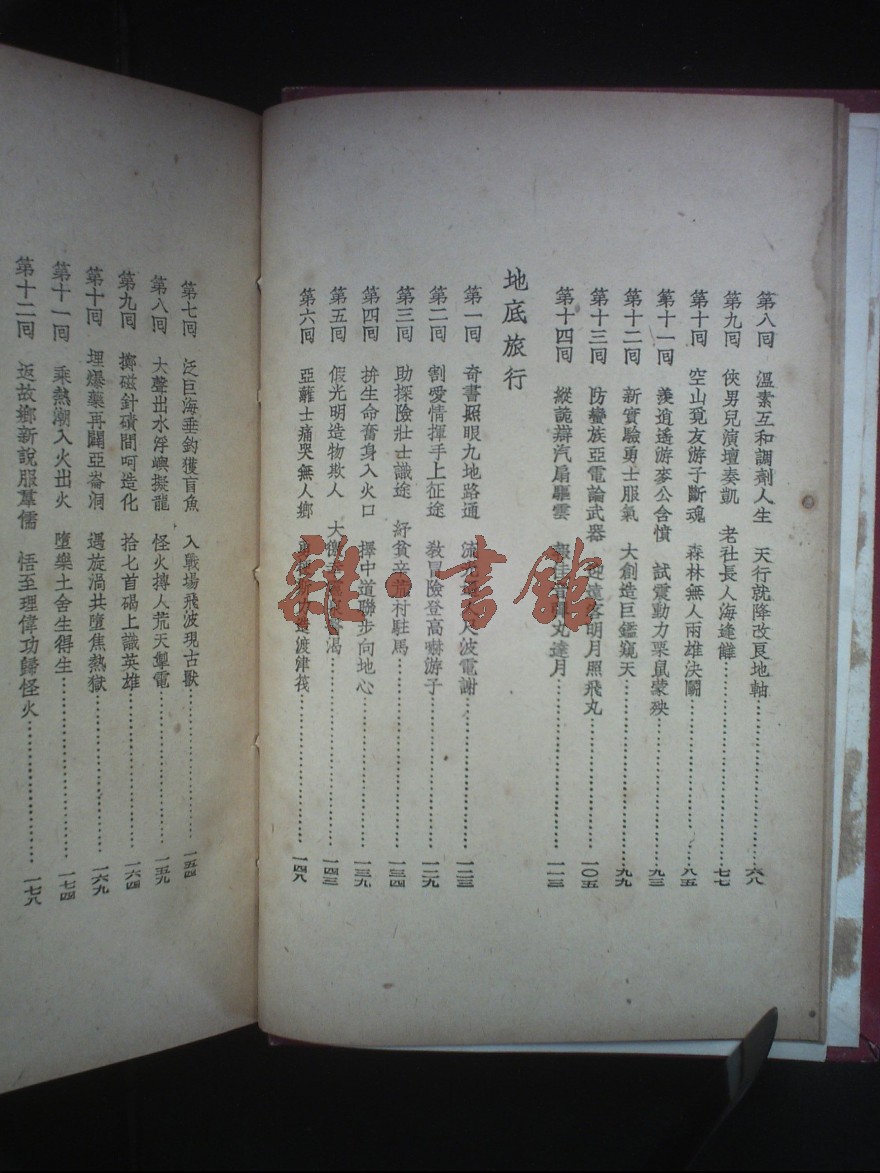 第八回 溫素互和調劑人生 天行就降改良地軸 六八
第九回 俠男兒演壇奏凱 老社長人海逢讎 七七
第十回 空山覓友游子斷魂 森林無人兩雄決鬭 八五
第十一回 羨逍遙游麥公含憤 試震動力栗鼠蒙殃 九三
第十二回 新實驗勇士服氣 大創造巨鑑窺天 九九
第十三回 防蠻族亞電論武器 迎遠客明月照飛丸 一〇五
第十四回 縱詭辯汽扇驅雲 報佳音彈丸達月 一一三
地底旅行
第一回 奇書照眼九地路通 流光逼人尺波電謝 一二三
第二回 割愛情揮手上征途 教冒險登高嚇游子 一二九
第三回 助探險壯士識途 紓貧辛荒村駐馬 一三四
第四回 拚生命奮身入火口 擇中道聯步向地心 一三九
第五回 假光明造物欺人 大渴 一四三
第六回 亞蘺士痛哭無人鄉 渡津筏 一四八
第七回 泛巨海垂釣獲盲魚 入戰場飛波現古獸 一五四
第八回 大聲出水浮嶼擬龍 怪火搏人荒天掣電 一五九
第九回 擲磁針碛間呵造化 拾匕首碣上識英雄 一六四
第十回 埋爆藥再闢亞崙洞 遇旋渦共墮焦熱獄 一六九
第十一回 乘熱潮入火出火 墮樂土舍生得生 一七四
第十二回 返故鄉新說服羣儒 悟至理偉功歸怪火 一七八
雜·書館